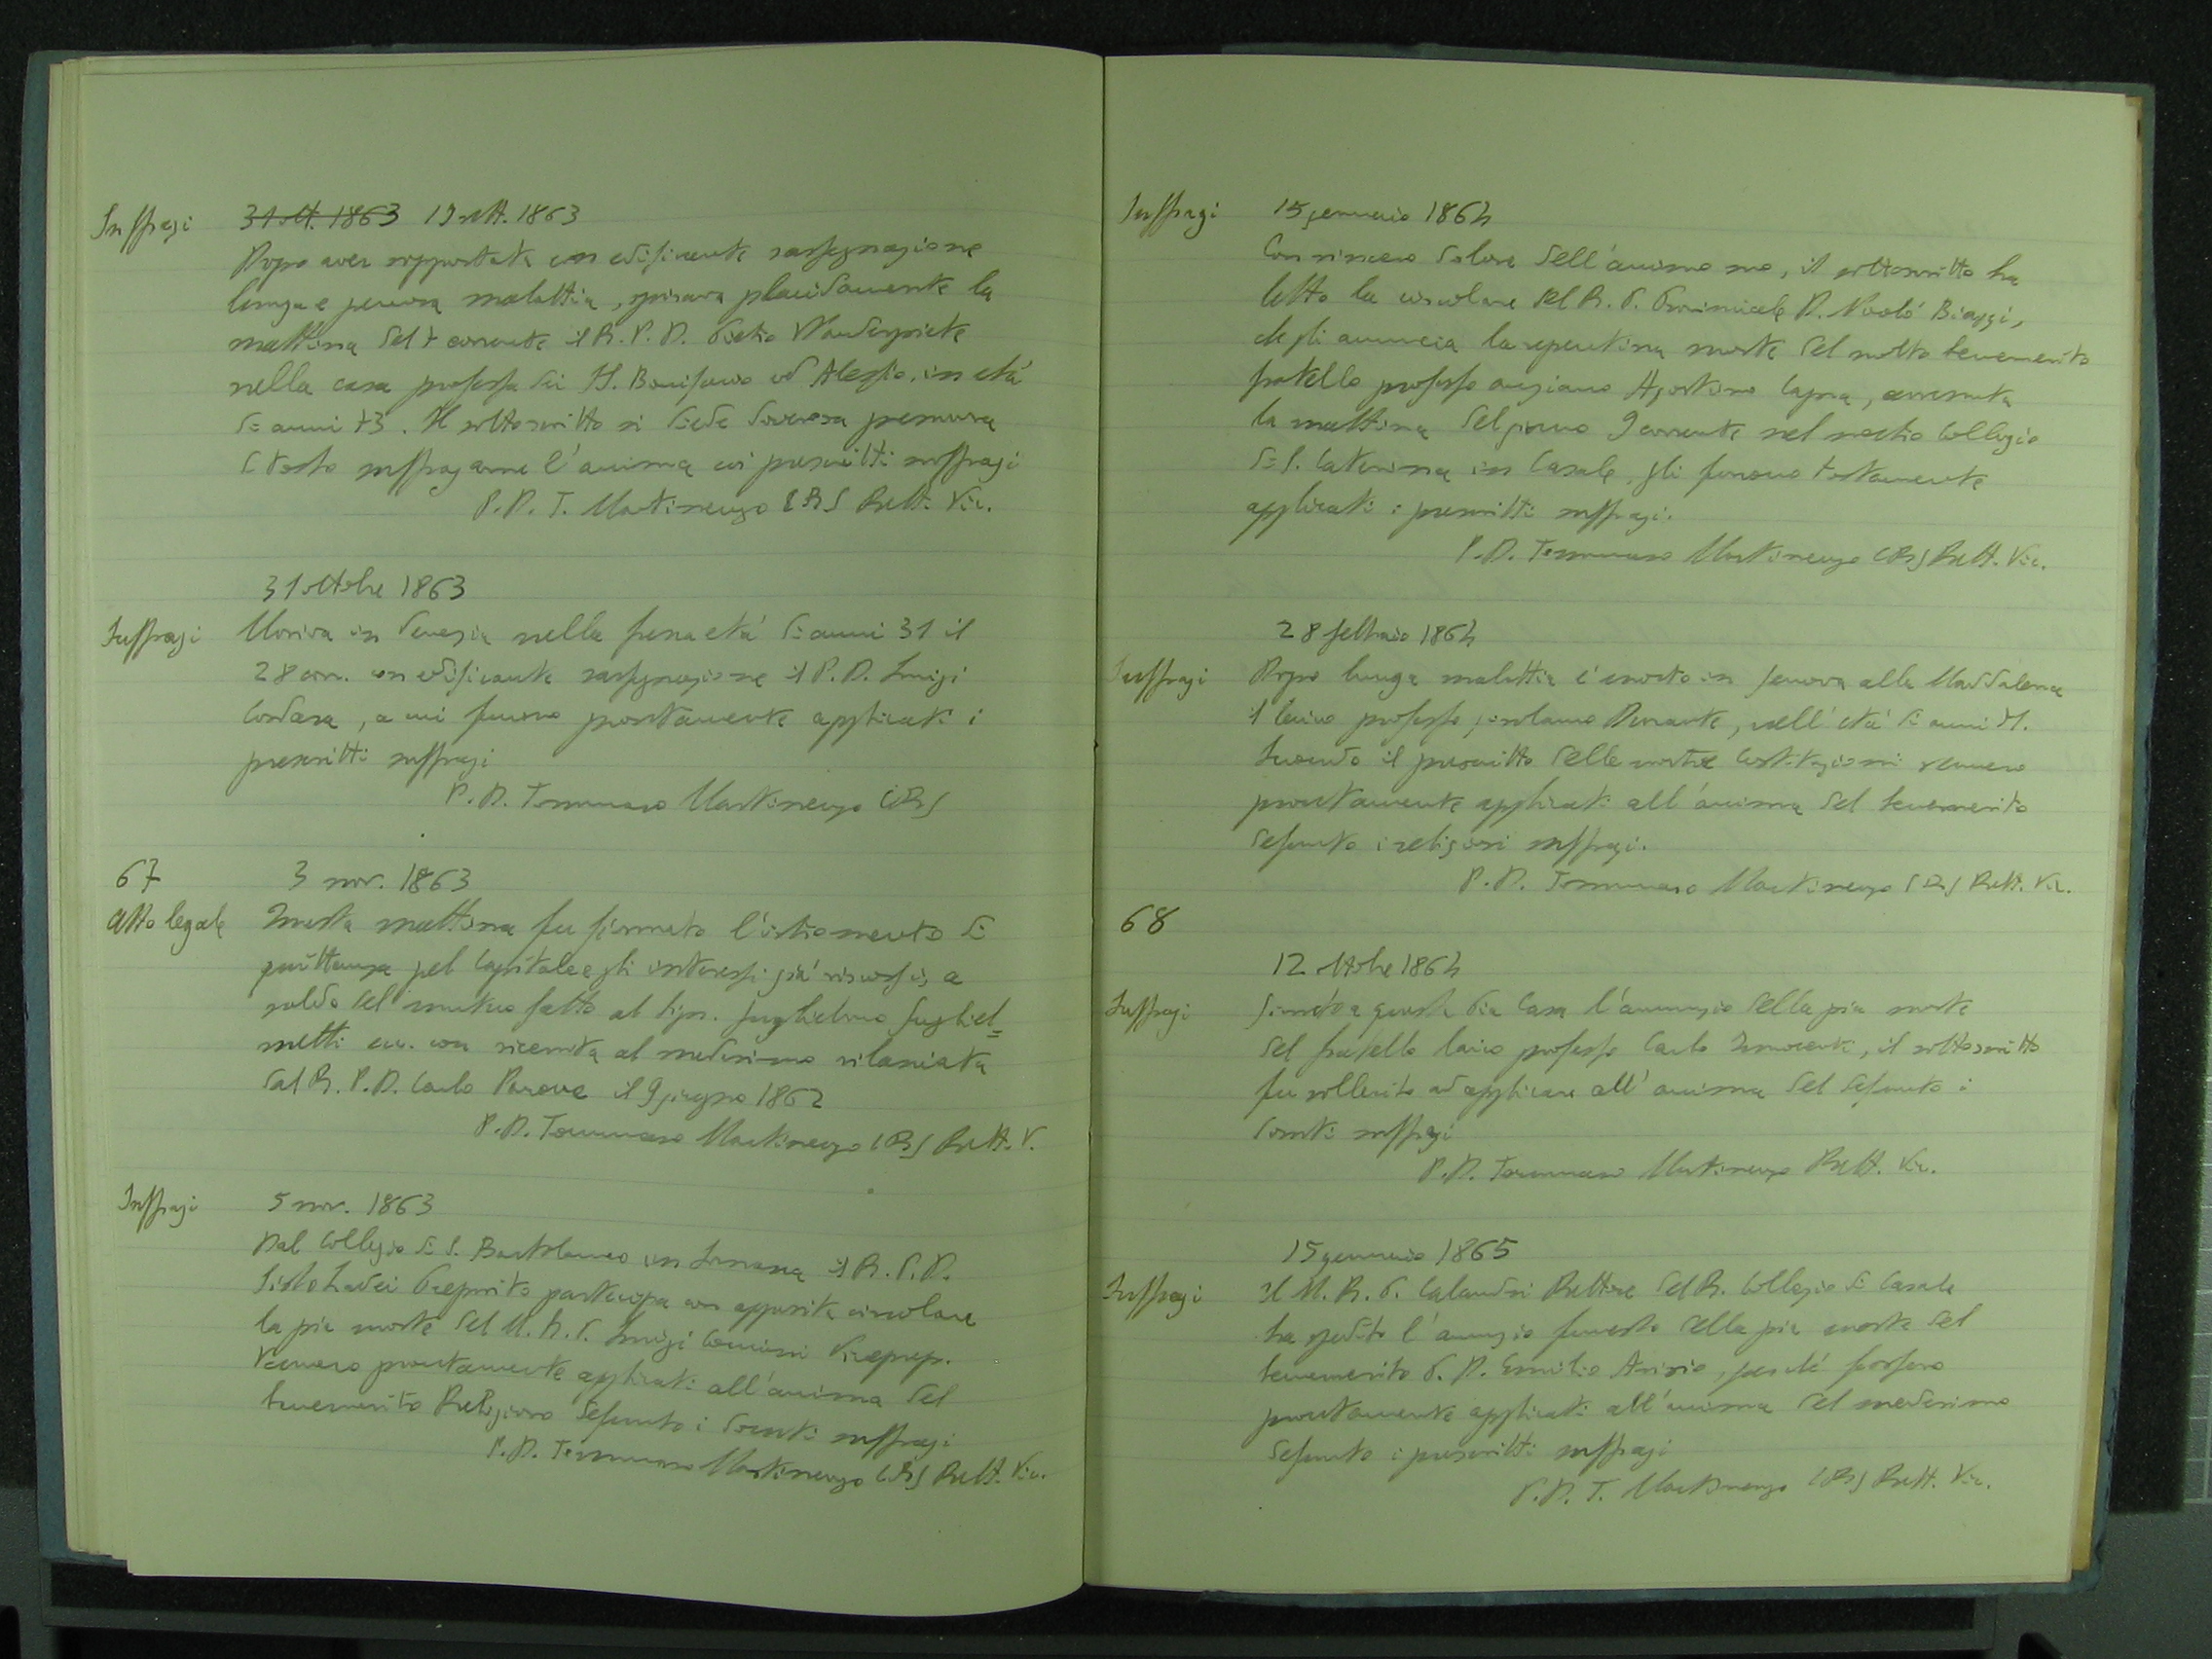 Suffragi
31 ott. 1863 19 sett. 1863
Dopo aver sopportata con edificante rassegnazione
lunga e penosa malattia, spirava placidamente la
mattina del 7 corrente il R. P. D. Pietro
nella casa professa dei SS. Bonifacio ed Alessio, in età
di anni 73. Il sottoscritto si diede doverosa premura
di tosto suffragarne l'anima coi prescritti suffragi
P. D. T. Martinengo CRS Rett. Vic.
31 ottobre 1863
Suffragi
Moriva in Venezia nella fresca età di anni 31 il
28 corr. con edificante rassegnazione il P. D. Luigi
a cui furono prontamente applicati i
prescritti suffragi
P. D. Tommaso Martinengo CRS
67
3 nov. 1863
Atto legale
Questa mattina fu firmato l'istromento di
quittanza pel capitale e gli interessi già riscossi, a
saldo del mutuo fatto al Sign. Guglielmo Gugliel=
metti ecc. con ricevuta al medesimo rilasciata
dal R. P. D. Carlo il 9 giugno 1862
P. D. Tommaso Martinengo CRS Rett. V.
Suffragi
5 nov. 1863
Dal Collegio di S. Bartolomeo in Somasca il R. P. D.
Sisto Zadei Preposito partecipa con apposita circolare
la pia morte del M. R. P. Luigi Viceprep.
Vennero prontamente applicati all'anima del
benemerito Religioso defunto i dovuti suffragi
P. D. Tommaso Martinengo CRS Rett. Vic.
Suffragi
15 gennaio 1864
Con sincero dolore dell'animo suo, il sottoscritto ha
letto la circolare del R. P. Provinciale D. Nicolò Biaggi,
che gli annuncia la repentina morte del molto benemerito
fratello professo anziano Agostino Capra, avvenuta
la mattina del giorno 9 corrente nel nostro Collegio
di S. Caterina in Casale, gli furono tostamente
applicati i prescritti suffragi.
P. D. Tommaso Martinengo CRS Rett. Vic.
28 febbraio 1864
Suffragi
Dopo lunga malattia è morto in Genova alla Maddalena
il laico professo Girolamo Durante, nell'età di anni 71.
Secondo il prescritto delle nostre Costituzioni vennero
prontamente applicati all'anima del benemerito
defunto i religiosi suffragi.
P. D. Tommaso Martinengo CRS Rett. Vic.
68
12 ottobre 1864
Suffragi
Giunto a questa Pia Casa l'annunzio della pia morte
del fratello laico professo Carlo Innocenti, il sottoscritto
fu sollecito ad applicare all'anima del defunto i
dovuti suffragi
P. D. Tommaso Martinengo Rett. Vic.
15 gennaio 1865
Suffragi
Il M. R. P. Calandri Rettore del R. Collegio di Casale
ha spedito l'annuzio funesto della pia morte del
benemerito P. D. Emilio Arisio, perché fossero
prontamente applicati all'anima del medesimo
defunto i prescritti suffragi
P. D. T. Martinengo CRS Rett. Vic.